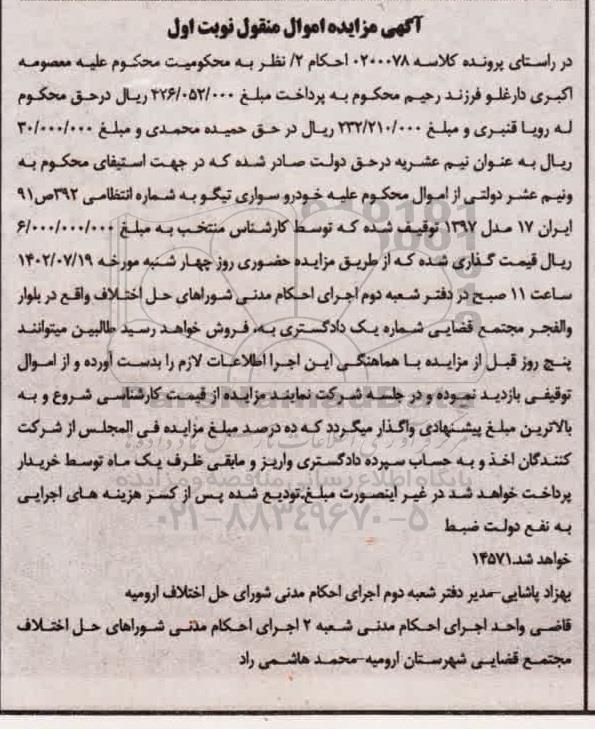 آگهی مزایده اموال منقول نوبت اول
در راستای پرونده کلاسه ۰۲۰۰۰۷۸ احکام ۲/ نظر به محکومیت محکوم علیه معصومه
اکبری دارغلو فرزند رحیم محکوم به پرداخت مبلغ ۴۲۶/۰۵۲/۰۰۰ ریال درحق محکوم
له رویا قنبری و مبلغ ۲۳۲/۲۱۰/۰۰۰ ریال در حق حمیده محمدی و مبلغ ۳۰/۰۰۰/۰۰۰
ریال به عنوان نیم عشریه درحق دولت صادر شده که در جهت استیفای محکوم به
ونیم عشر دولتی از اموال محکوم علیه خودرو سواری تیگو به شماره انتظامی ۳۹۲ص۹۱
ایران ۱۷ مدل ۱۳۹۷ توقیف شده که توسط کارشناس منتخب به مبلغ ۶/۰۰۰/۰۰۰/۰۰۰
ریال قیمت گذاری شده که از طریق مزایده حضوری روز چهار شنبه مورخه ۱۴۰۲/۰۷/۱۹
ساعت ۱۱ صبح در دفتر شعبه دوم اجرای احکام مدنی شوراهای حل اختلاف واقع در بلوار
والفجر مجتمع قضایی شماره یک دادگستری به، فروش خواهد رسید طالبین میتوانند
پنج روز قبل از مزایده با هماهنگی این اجرا اطلاعات لازم را بدست آورده و از اموال
توقیفی بازدید نموده و در جلسه شرکت نمایند مزایده از قیمت کارشناسی شروع و به
بالاترین مبلغ پیشنهادی واگذار میگردد که ده درصد مبلغ مزایده فی المجلس از شرکت
کنندگان اخذ و به حساب سپرده دادگستری واریز و مابقی ظرف یک ماه توسط خریدار
پرداخت خواهد شد در غیر اینصورت مبلغ.تودیع شده پس از کسر هزینه های اجرایی
به نفع دولت ضبط
خواهد شد.۱۴۵۷۱
بهزاد پاشایی-مدیر دفتر شعبه دوم اجرای احکام مدنی شورای حل اختلاف ارومیه
قاضی واحد اجرای احکام مدنی شعبه ۲ اجرای احکام مدنی شوراهای حل اختلاف
مجتمع قضایی شهرستان ارومیه-محمد هاشمی راد
ParsNamadData
پایگاه اطلاع رسانی مناقصه و مزایده
۰۲۱-۸۸۳۴۹۶۷۰-۵